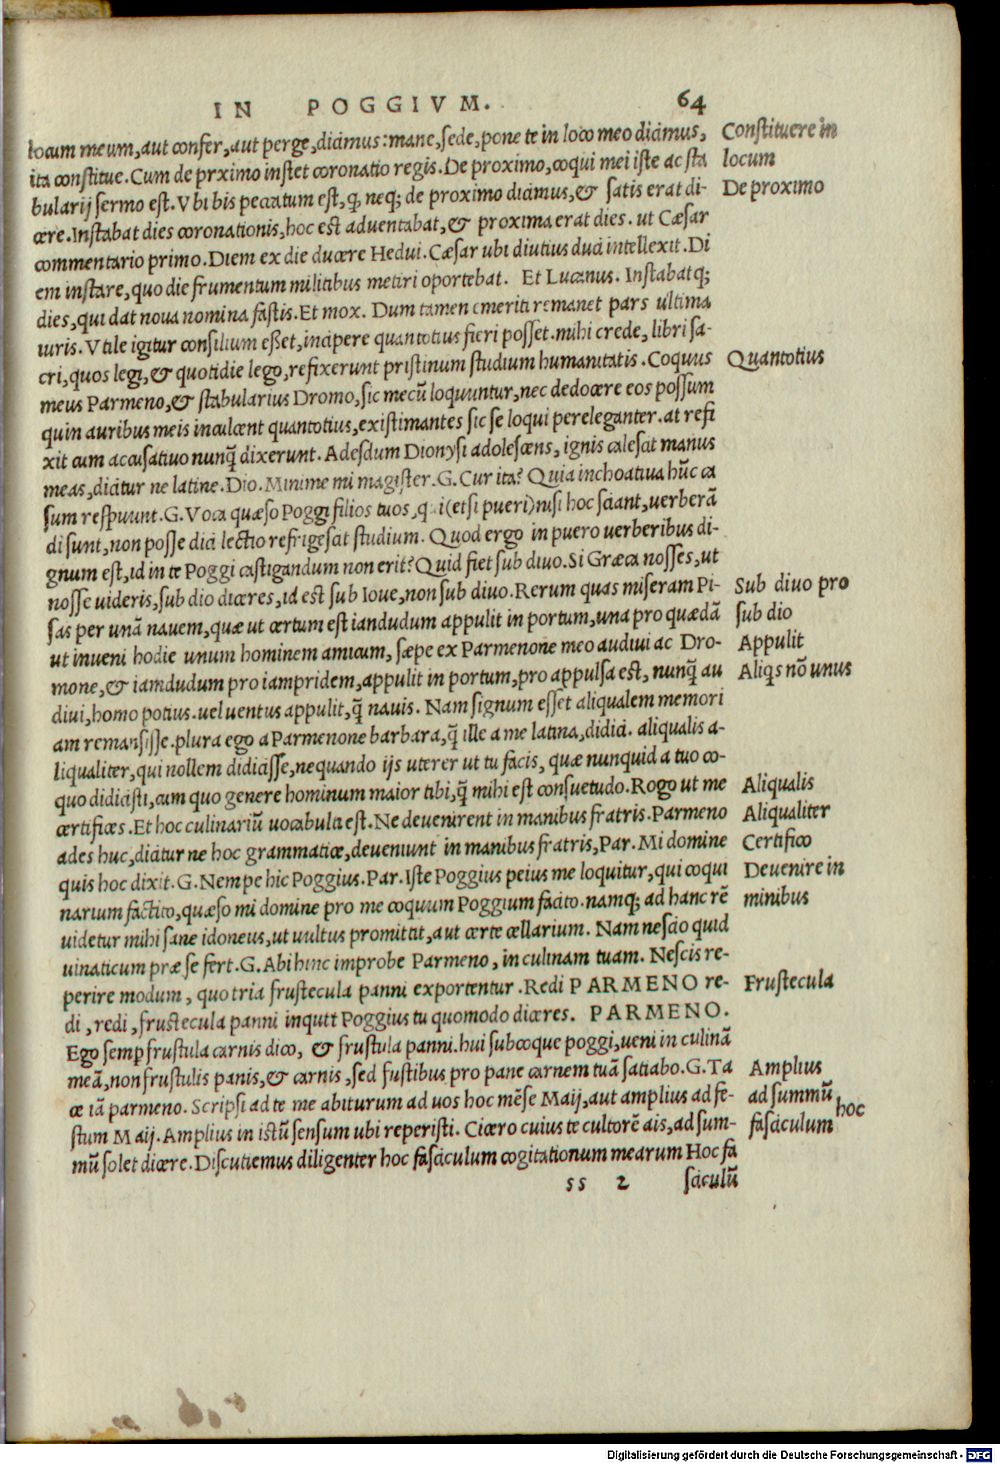 IN POGGIVM. 64
locum meum, aut confer, aut perge, dicimus: mane, sede, pone te in loco meo dicimus,
ita constitue. Cum de prximo instet coronatio regis. De proximo, coqui mei iste ac sta
bularij sermo est. Vbi bis peccatum est, q, neq; de proximo dicimus, & satis erat di-
cere. Instabat dies coronationis, hoc est aduentabat, & proxima erat dies. ut Cæsar
commentario primo. Diem ex die ducere Hedui. Cæsar ubi diutius duci intellexit. Di
em instare, quo die frumentum militibus metiri oportebat. Et Lucanus. Instabatq;
dies, qui dat noua nomina fastis. Et mox. Dum tamen emeriti remanet pars ultima
iuris. Vtile igitur consilium eßet, incipere quantotius fieri posset. mihi crede, libri sa-
cri, quos legi, & quotidie lego, refixerunt pristinum studium humanitatis. Coquus
meus Parmeno, & stabularius Dromo, sic mecū loquuntur, nec dedocere eos possum
quin auribus meis inculcent quantotius, existimantes sic se loqui pereleganter. at refi
xit cum accusatiuo nunq̄ dixerunt. Adesdum Dionysi adolescens, ignis calescat manus
meas, dicitur ne latine. Dio. Minime mi magister. G. Cur ita? Quia inchoatiua hūc ca
sum respuunt. G. Voca quæso Poggi filios tuos, qui (etsi pueri) nisi hoc sciant, uerberā
di sunt, non posse dici lectio refrigescat studium. Quod ergo in puero uerberibus di-
gnum est, id in te Poggi castigandum non erit? Quid fiet sub diuo. Si Græca nosses, ut
nosse uideris, sub dio diceres, id est sub Ioue, non sub diuo. Rerum quas miseram Pi-
sas per unā nauem, quæ ut certum est iandudum appulit in portum, una pro quædā
ut inueni hodie unum hominem amicum, sæpe ex Parmenone meo audiui ac Dro-
mone, & iamdudum pro iampridem, appulit in portum, pro appulsa est, nunq̄ au
diui, homo potius. uel uentus appulit, q̄ nauis. Nam signum esset aliqualem memori
am remansisse. plura ego a Parmenone barbara, q̄ ille a me latina, didici. aliqualis a-
liqualiter, qui nollem didicisse, nequando ijs uterer ut tu facis, quæ nunquid a tuo co-
quo didicisti, cum quo genere hominum maior tibi, q̄ mihi est consuetudo. Rogo ut me
certifices. Et hoc culinariū uocabulū est. Ne deuenirent in manibus fratris. Parmeno
ades huc, dicitur ne hoc grammatice, deueniunt in manibus fratris, Par. Mi domine
quis hoc dixit. G. Nempe hic Poggius. Par. Iste Poggius peius me loquitur, qui coqui
narium factito, quæso mi domine pro me coquum Poggium facito. namq; ad hanc rē
uidetur mihi sane idoneus, ut uultus promittit, aut certe cellarium. Nam nescio quid
uinaticum præ se fert. G. Abi hinc improbe Parmeno, in culinam tuam. Nescis re-
perire modum, quo tria frustecula panni exportentur. Redi PARMENO re-
di, redi, frustecula panni inquit Poggius tu quomodo diceres. PARMENO.
Ego semp frustula carnis dico, & frustula panni. hui subcoque poggi, ueni in culinā
meā, non frustulis panis, & carnis, sed fustibus pro pane carnem tuā satiabo. G. Ta
ce iā parmeno. Scripsi ad te me abiturum ad uos hoc mēse Maij, aut amplius ad fe-
stum Maij. Amplius in istū sensum ubi reperisti. Cicero cuius te cultorē ais, ad sum-
mū solet dicere. Discutiemus diligenter hoc fasciculum cogitationum mearum Hoc fa
ss 2 sciculū
Constituere in
locum
De proximo
Quantotius
Sub diuo pro
sub dio
Appulit
Aliqs nō unus
Aliqualis
Aliqualiter
Certifico
Deuenire in
minibus
Frustecula
Amplius
ad summū
hoc
fasciculum
Digitalisierung gefördert durch die Deutsche Forschungsgemeinschaft - DFG